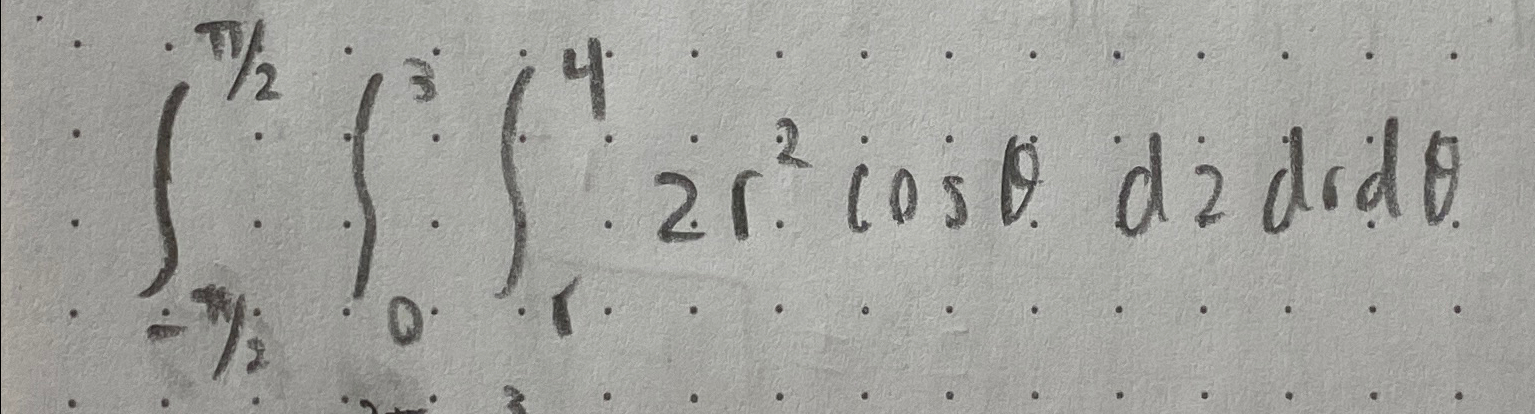 ∫_{-π/2}^{π/2} ∫_{0}^{3} ∫_{r}^{4} 2r² cos θ dz dr dθ